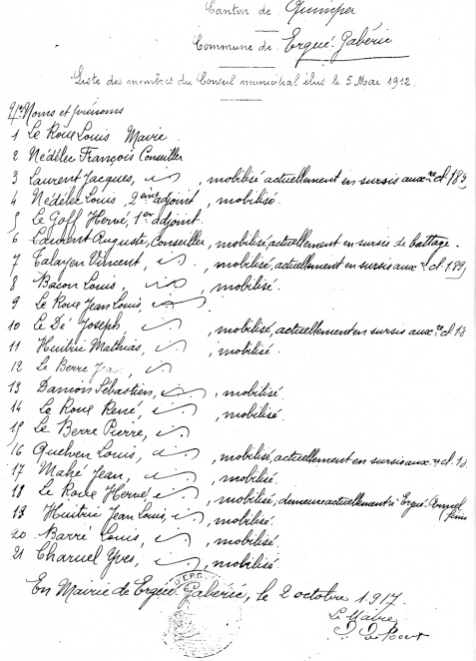 Canton de Quimper
Commune de Ergué-Gabéric
Liste des membres du Conseil municipal élus le 5 Mai 1912.
Nos Noms et prénoms
1 Le Roux Louis Maire
2 Nédélec François Conseiller
3 Laurent Jacques, id, mobilisé actuellement en sursis aux. re cl. 189
4 Nédélec Louis, 2eme adjoint, mobilisé.
5 Le Goff Hervé, 1er adjoint.
6 Laurent Auguste, Conseiller, mobilisé actuellement en sursis de battage.
7 Talayen Vincent, id, mobilisé, actuellement en sursis aux. re cl. 189
8 Bacon Louis, id, mobilisé.
9 Le Roux Jean Louis, id.
10 Le Dé Joseph, id, mobilisé, actuellement en sursis aux. re cl. 18
11 Huitric Mathias, id, mobilisé.
12 Le Berre Jean, id
13 Danion Sébastien, id, mobilisé.
14 Le Roux René, id, mobilisé.
15 Le Berre Pierre, id.
16 Quelven Louis, id, mobilisé, actuellement en sursis aux. re cl. 18
17 Mahé Jean, id, mobilisé.
18 Le Roux Hervé, id, mobilisé, demeure actuellement à Ergué-Armel
19 Huitric Jean Louis, id, mobilisé.
20 Barré Louis, id, mobilisé.
21 Charuel Yves, id, mobilisé.
En Mairie de Ergué-Gabéric, le 2 octobre 1917.
Le Maire
Le Roux